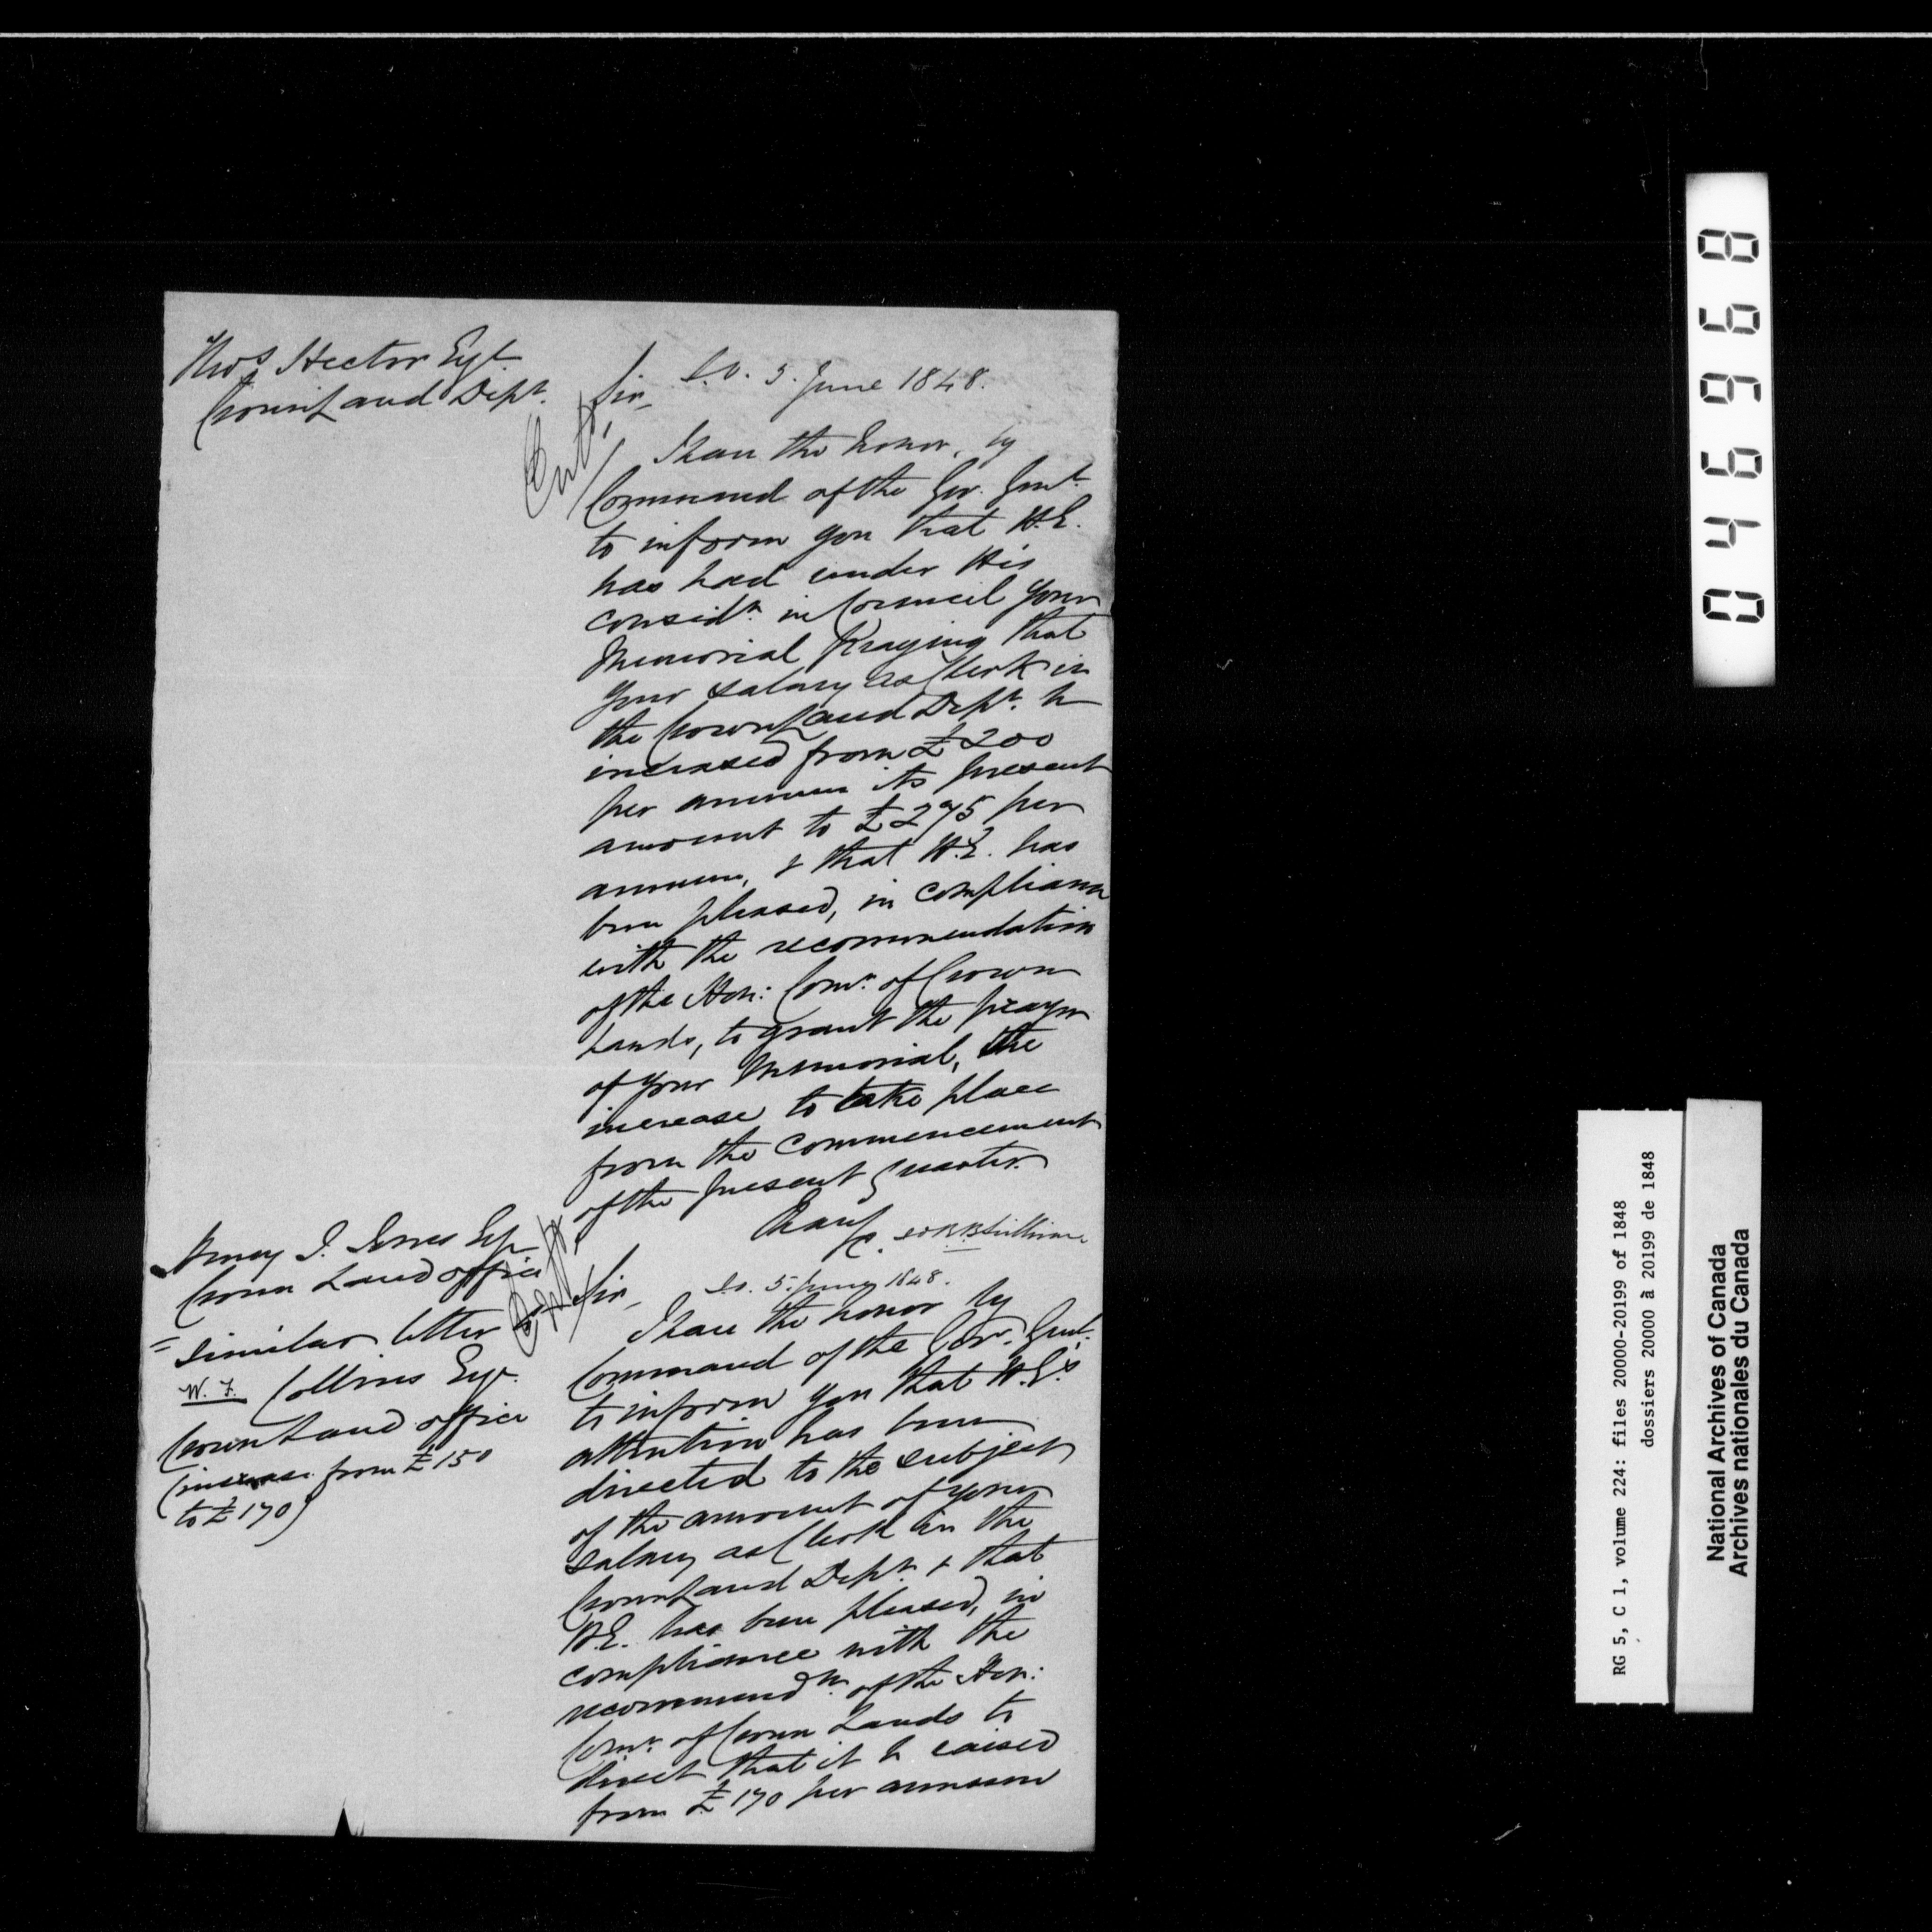 Thos Hector Esqr
Crown Land Dept.
S.O. 5. June 1848.
Sir,
Entd
I have the honor, by
Command of the Gov. Genl.
to inform you that H.E.
has had under His
considn. in Council your
Memorial Praying that
your salary as Clerk in
the Crown Land Dept. be
increased from £200
per annum its present
amount to £275 per
annum, & that H.E. has
been pleased, in compliance
with the recommendation
of the Hon: Comr. of Crown
Lands, to grant the prayer
of your Memorial, the
increase to take place
from the commencement
of the present Quarter.
I have &c.
Henry J. Jones Esqr
Crown Land Office
= similar letter to
W. F. Collins Esqr.
Crown Land Office
(increase from £150
to £170)
Entd
S.O. 5. June 1848.
Sir,
I have the honor by
Command of the Gov. Genl.
to inform you that H.E's
attention has been
directed to the subject
of the amount of your
salary as Clerk in the
Crown Land Dept. & that
H.E. has been pleased, in
compliance with the
recommendn. of the Hon:
Comr. of Crown Lands to
direct that it be raised
from £170 per annum
046968
RG 5, C 1, volume 224: files 20000-20199 of 1848
dossiers 20000 à 20199 de 1848
National Archives of Canada
Archives nationales du Canada